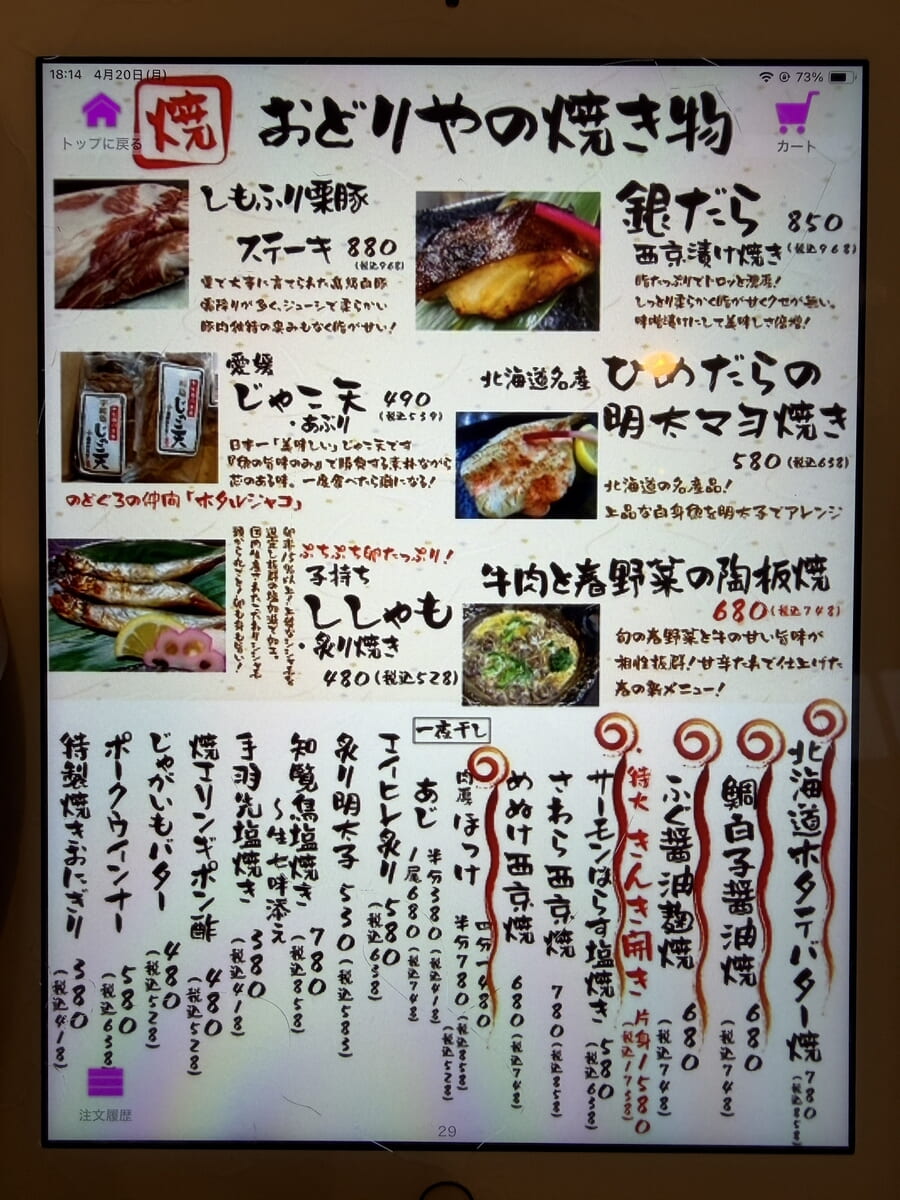 18:14 4月20日(月)
73%
トップに戻る
焼
おどりやの焼き物
カート
しもふり栗豚
ステーキ 880
(税込968)
栗で大事に育てられた高級白豚
霜降りが多く、ジューシーで柔らかい
豚肉独特の臭みもなく脂が甘い!
銀だら 850
西京漬け焼き (税込968)
脂たっぷりでトロッと濃厚!
しっとり柔らかく脂が甘くクセが無い。
味噌漬けにして美味しさ倍増!
愛媛
じゃこ天 490
・あぶり (税込539)
日本一「美味しい」じゃこ天です
『魚の旨味のみ』で勝負する素朴ながら
芯のある味。一度食べたら癖になる!
のどぐろの仲間「ホタルジャコ」
北海道名産 ひめだらの
明太マヨ焼き
580 (税込638)
北海道の名産品!
上品な白身魚を明太子でアレンジ
ぷちぷち卵たっぷり!
子持ち
ししゃも
・炙り焼き
480 (税込528)
牛肉と春野菜の陶板焼
680 (税込748)
旬の春野菜と牛の甘い旨味が
相性抜群!甘辛たれで仕上げた
春の新メニュー!
北海道ホタテバター焼 780 (税込858)
鯛白子醤油焼 680 (税込748)
ふぐ醤油麹焼 680 (税込748)
特大 きんき開き 片身1580 (税込1738)
サーモンはらす塩焼き 580 (税込638)
さわら西京焼 780 (税込858)
めぬけ西京焼 680 (税込748)
一夜干し
肉厚ほっけ 四分一480 (税込528)
半分780 (税込858)
あじ 半分380 (税込418)
1尾680 (税込748)
エイヒレ炙り 580 (税込638)
炙り明太子 530 (税込583)
知覧鳥塩焼き 〜生七味添え 780 (税込858)
手羽先塩焼き 380 (税込418)
焼エリンギポン酢 480 (税込528)
じゃがいもバター 480 (税込528)
ポークウインナー 580 (税込638)
特製焼きおにぎり 380 (税込418)
注文履歴
29